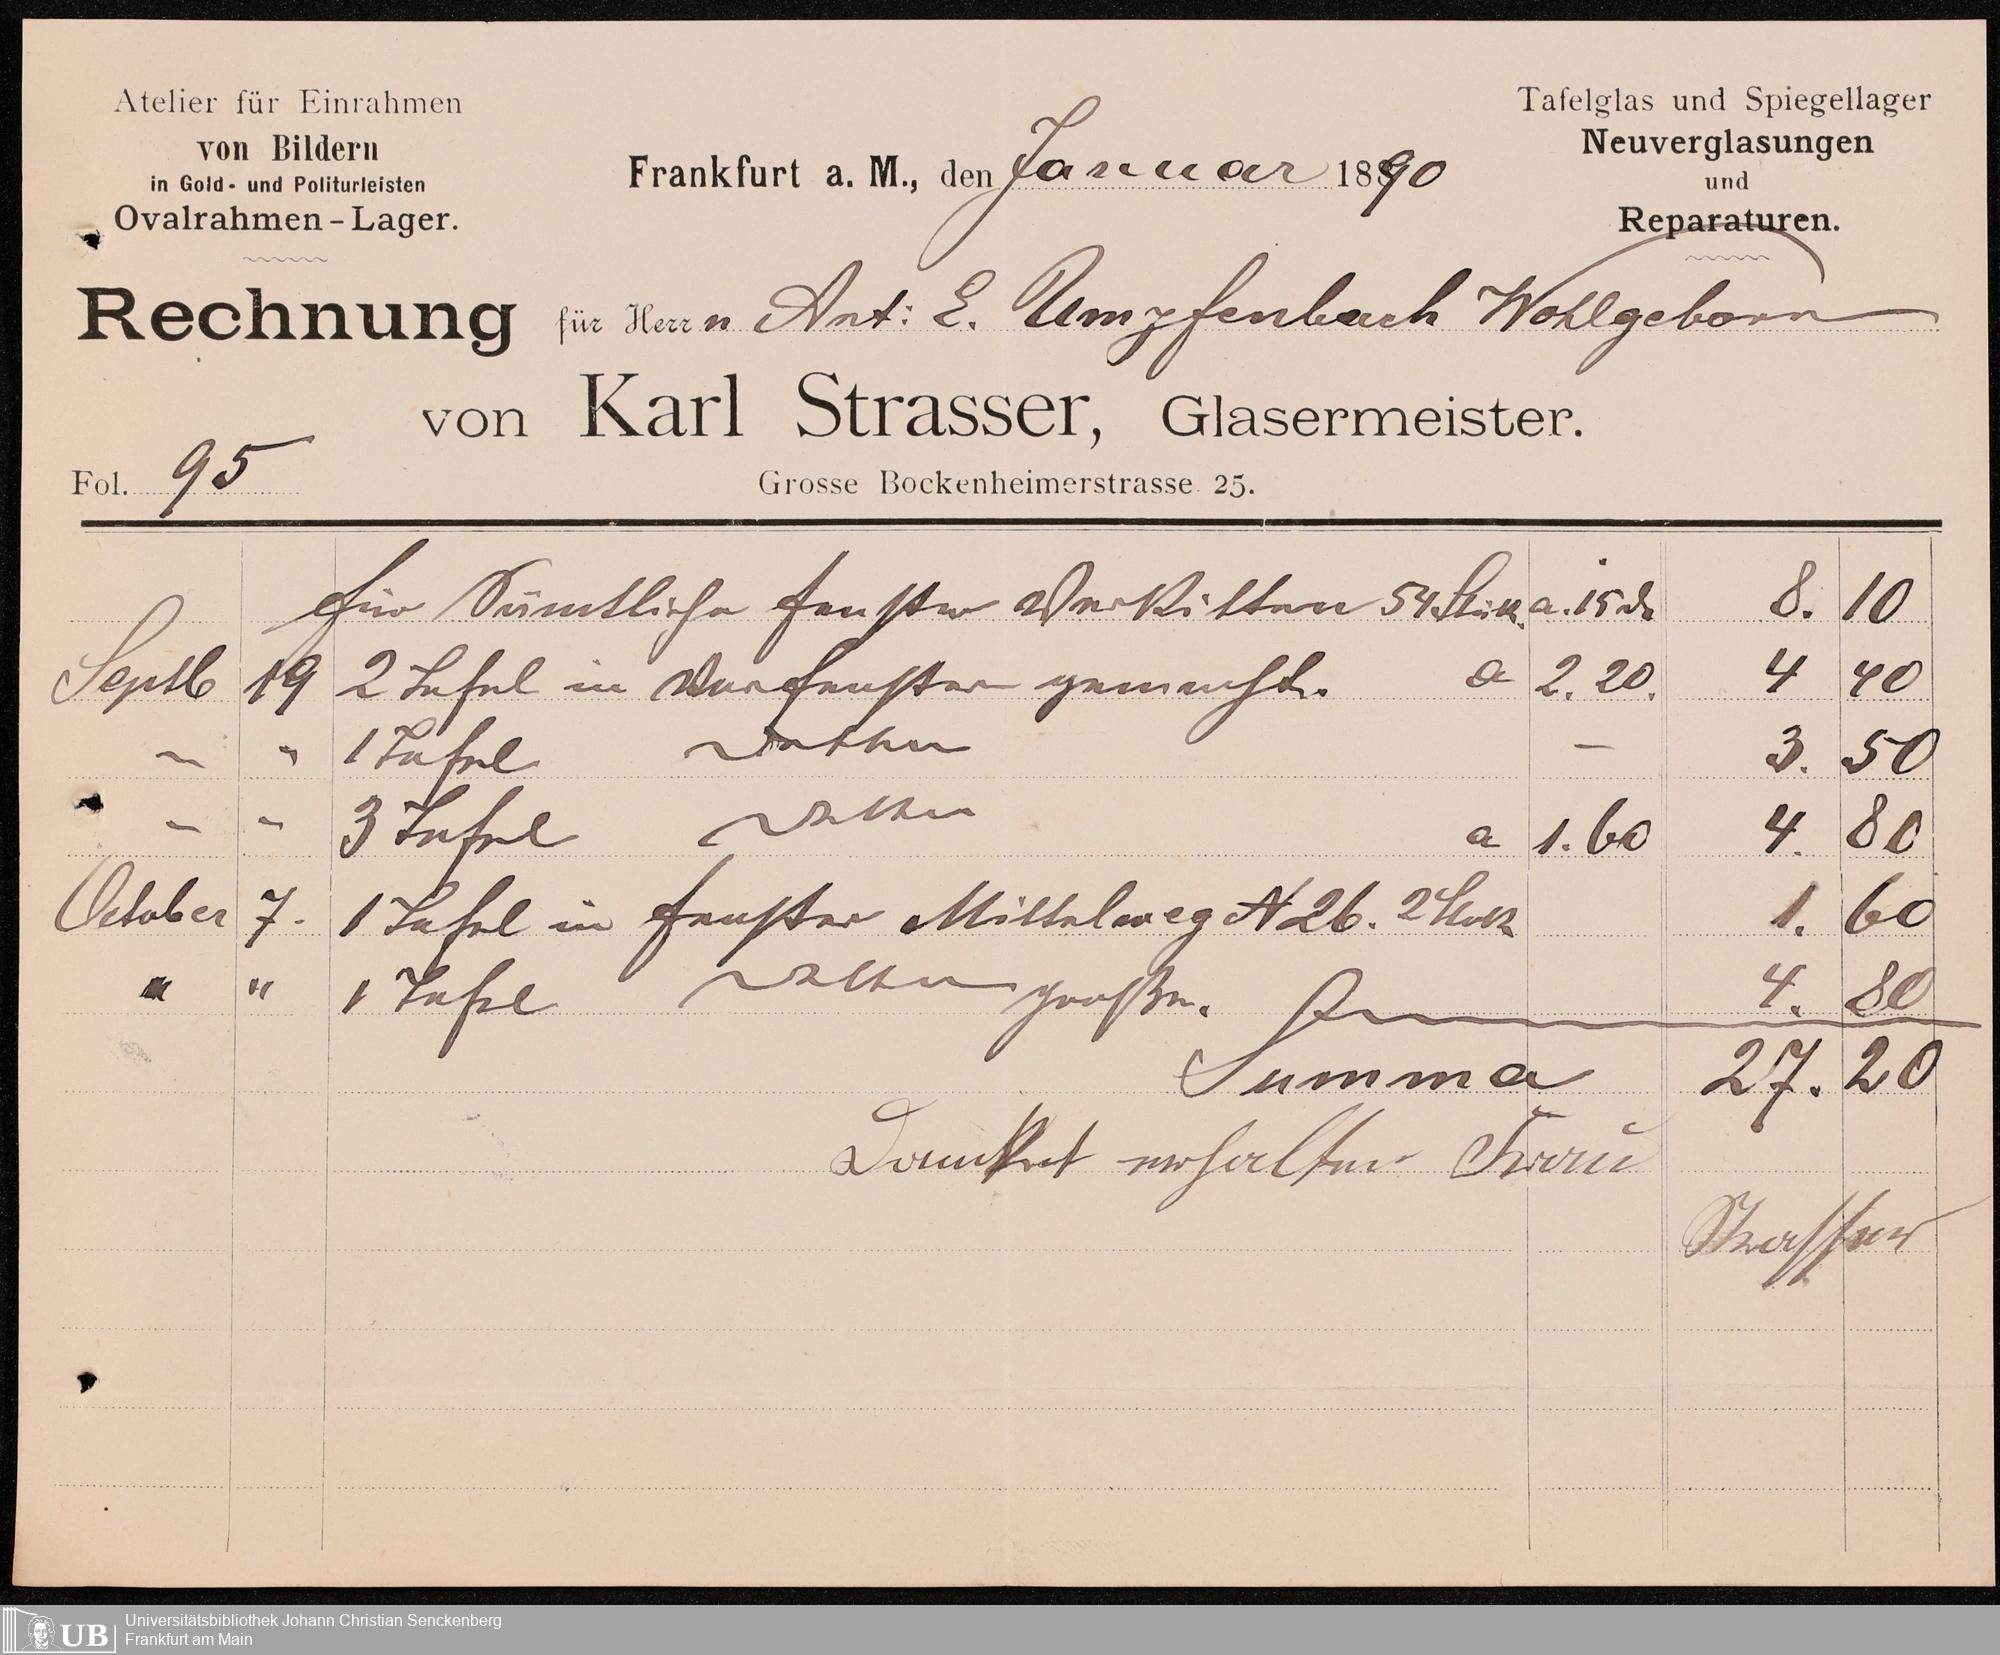 Atelier für Einrahmen
von Bildern
in Gold- und Politurleisten
Ovalrahmen-Lager.
Frankfurt a. M., den Januar 1890
Tafelglas und Spiegellager
Neuverglasungen
und
Reparaturen.
Rechnung für Herrn Ant: E. Umpfenbach Wohlgeborn
von Karl Strasser, Glasermeister.
Fol. 95
Grosse Bockenheimerstrasse 25.
für Sämtliche Fenster Verkitten 54 Stük. a. 15 8. 10
Septb 19 2 Tafel in Vorfenster gemacht. a 2.20. 4 40
" " 1 Tafel — 3. 50
" " 3 Tafel a 1.60 4. 80
October 7. 1 Tafel in Fenster Mittelweg N 26. 2 Stok 1. 60
" " 1 Tafel große. 4. 80
Summa 27. 20
Dankend erhalten Frau
Strasser
UB
Universitätsbibliothek Johann Christian Senckenberg
Frankfurt am Main